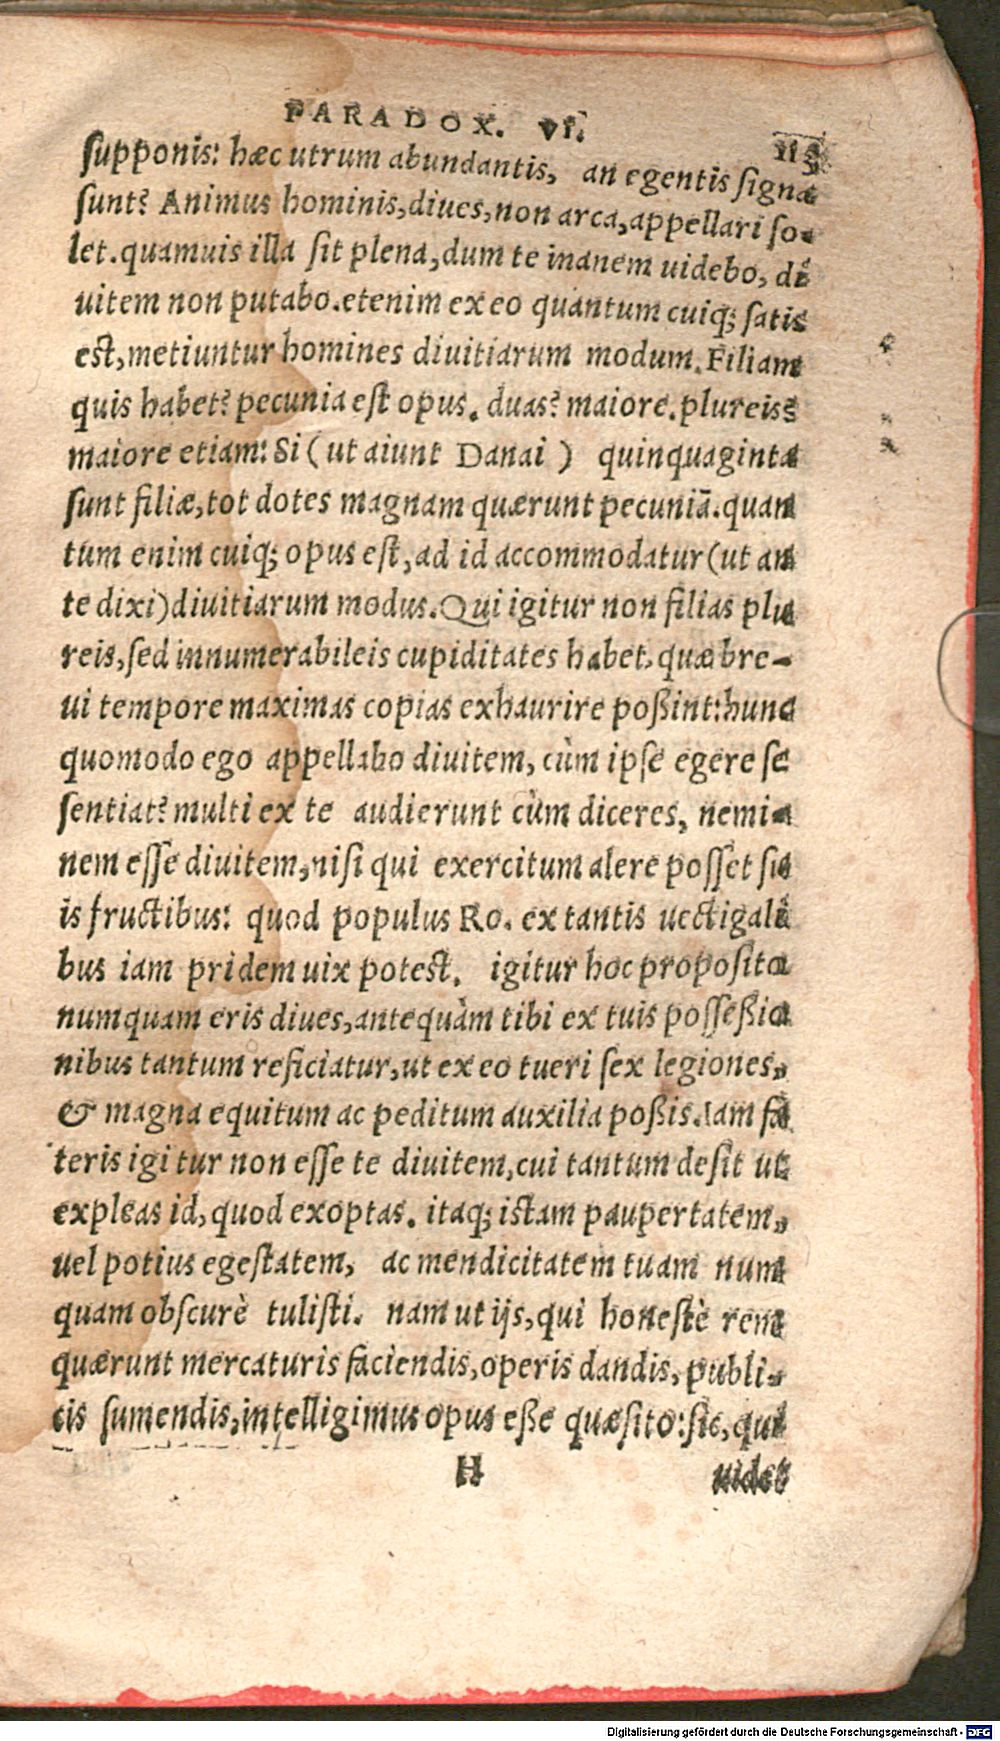 PARADOX. VI.
113
supponis: hæc utrum abundantis, an egentis signa
sunt? Animus hominis, diues, non arca, appellari so-
let. quamuis illa sit plena, dum te inanem uidebo, di
uitem non putabo. etenim ex eo quantum cuiq; satis
est, metiuntur homines diuitiarum modum. Filiam
quis habet? pecunia est opus. duas? maiore. plureis?
maiore etiam: Si (ut aiunt Danai) quinquaginta
sunt filiæ, tot dotes magnam quærunt pecuniā. quan
tum enim cuiq; opus est, ad id accommodatur (ut an
te dixi) diuitiarum modus. Qui igitur non filias plu
reis, sed innumerabileis cupiditates habet, quæ bre-
ui tempore maximas copias exhaurire poßint: hunc
quomodo ego appellabo diuitem, cùm ipse egere se
sentiat? multi ex te audierunt cùm diceres, nemi-
nem esse diuitem, nisi qui exercitum alere posset su
is fructibus: quod populus Ro. ex tantis uectigali
bus iam pridem uix potest. igitur hoc proposito
numquam eris diues, antequàm tibi ex tuis posseßio
nibus tantum reficiatur, ut ex eo tueri sex legiones,
& magna equitum ac peditum auxilia poßis. Iam fa
teris igitur non esse te diuitem, cui tantum desit ut
expleas id, quod exoptas. itaq; istam paupertatem,
uel potius egestatem, ac mendicitatem tuam num
quam obscurè tulisti. nam ut ijs, qui honestè rem
quærunt mercaturis faciendis, operis dandis, publi-
cis sumendis, intelligimus opus eße quæsito: sic, qui
H uidet
Digitalisierung gefördert durch die Deutsche Forschungsgemeinschaft - DFG